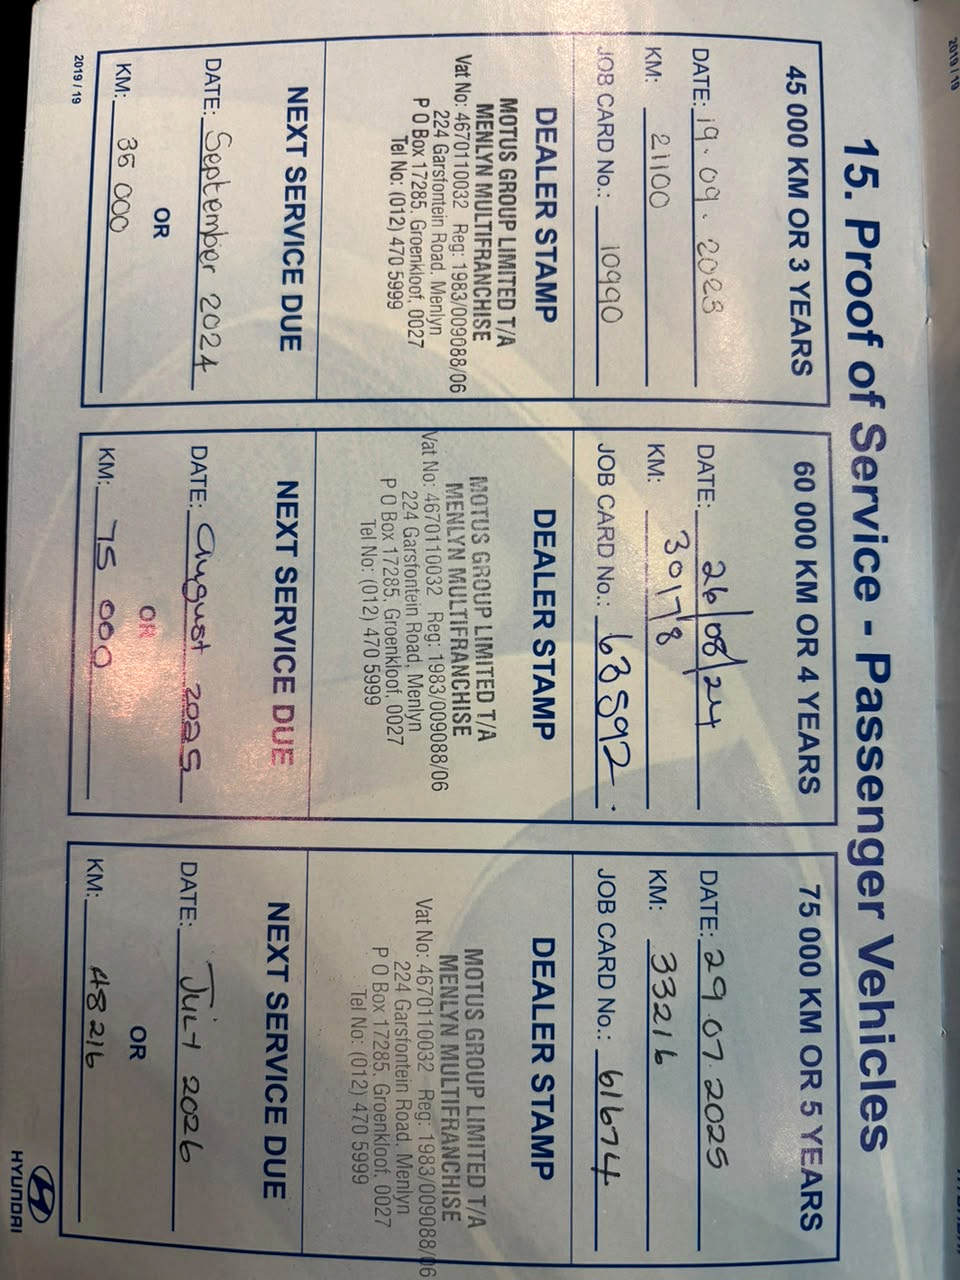 15. Proof of Service - Passenger Vehicles
45 000 KM OR 3 YEARS
DATE: 19.09.2023
KM: 21100
JOB CARD No.: 10990
DEALER STAMP
MOTUS GROUP LIMITED T/A
MENLYN MULTIFRANCHISE
Vat No: 4670110032 Reg: 1983/009088/06
224 Garsfontein Road, Menlyn
P O Box 17285, Groenkloof, 0027
Tel No: (012) 470 5999
NEXT SERVICE DUE
DATE: September 2024
OR
KM: 35 000
60 000 KM OR 4 YEARS
DATE: 26/08/24
KM: 30178
JOB CARD No.: 63592.
DEALER STAMP
MOTUS GROUP LIMITED T/A
MENLYN MULTIFRANCHISE
Vat No: 4670110032 Reg: 1983/009088/06
224 Garsfontein Road, Menlyn
P O Box 17285, Groenkloof, 0027
Tel No: (012) 470 5999
NEXT SERVICE DUE
DATE: August 2025
OR
KM: 75 000
75 000 KM OR 5 YEARS
DATE: 29.07.2025
KM: 33216
JOB CARD No.: 61674
DEALER STAMP
MOTUS GROUP LIMITED T/A
MENLYN MULTIFRANCHISE
Vat No: 4670110032 Reg: 1983/009088/06
224 Garsfontein Road, Menlyn
P O Box 17285, Groenkloof, 0027
Tel No: (012) 470 5999
NEXT SERVICE DUE
DATE: JULY 2026
OR
KM: 48216
2019 / 19
HYUNDAI
2019 / 19